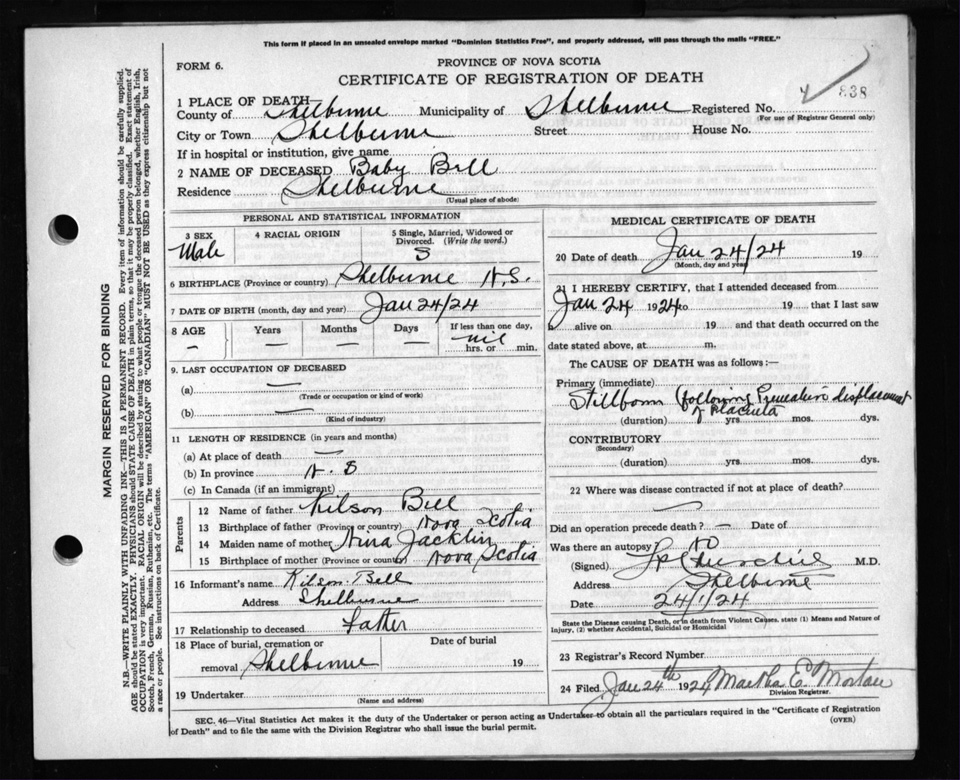 This form if placed in an unsealed envelope marked "Dominion Statistics Free", and properly addressed, will pass through the mails "FREE."
FORM 6.
PROVINCE OF NOVA SCOTIA
CERTIFICATE OF REGISTRATION OF DEATH
838
1 PLACE OF DEATH—
County of Shelburne Municipality of Shelburne Registered No.
(For use of Registrar General only)
City or Town Shelburne Street House No.
If in hospital or institution, give name
2 NAME OF DECEASED Baby Bill
Residence Shelburne
(Usual place of abode)
PERSONAL AND STATISTICAL INFORMATION
3 SEX
Male
4 RACIAL ORIGIN
5 Single, Married, Widowed or Divorced. (Write the word.)
S
6 BIRTHPLACE (Province or country) Shelburne N.S.
7 DATE OF BIRTH (month, day and year) Jan 24/24
8 AGE Years Months Days If less than one day,
— — — — nil
hrs. or min.
9. LAST OCCUPATION OF DECEASED
(a) —
(Trade or occupation or kind of work)
(b) —
(Kind of industry)
11 LENGTH OF RESIDENCE (in years and months)
(a) At place of death —
(b) In province N. S
(c) In Canada (if an immigrant)
Parents
12 Name of father Kilson Bill
13 Birthplace of father (Province or country) Nova Scotia
14 Maiden name of mother Nina Jacklin
15 Birthplace of mother (Province or country) Nova Scotia
16 Informant's name Kilson Bell
Address Shelburne
17 Relationship to deceased Father
18 Place of burial, cremation or removal Shelburne
Date of burial
19
19 Undertaker
(Name and address)
MEDICAL CERTIFICATE OF DEATH
20 Date of death Jan 24/24 19
(Month, day and year)
21 I HEREBY CERTIFY, that I attended deceased from
Jan 24 1924 to 19 that I last saw
h alive on 19 and that death occurred on the
date stated above, at m.
The CAUSE OF DEATH was as follows:—
Primary (immediate)
Stillborn (following Premature displacement
of Placenta
(duration) yrs. mos. dys.
CONTRIBUTORY
(Secondary)
(duration) yrs. mos. dys.
22 Where was disease contracted if not at place of death?
—
Did an operation precede death? — Date of
Was there an autopsy No
(Signed) Churchill M.D.
Address Shelburne
Date 24/1/24
State the Disease causing Death, or in death from Violent Causes, state (1) Means and Nature of Injury, (2) whether Accidental, Suicidal or Homicidal
23 Registrar's Record Number
24 Filed Jan 24th 1924 Martha E. Morton
Division Registrar.
SEC. 46—Vital Statistics Act makes it the duty of the Undertaker or person acting as Undertaker to obtain all the particulars required in the "Certificate of Registration
of Death" and to file the same with the Division Registrar who shall issue the burial permit.
(OVER)
MARGIN RESERVED FOR BINDING
N.B.—WRITE PLAINLY WITH UNFADING INK—THIS IS A PERMANENT RECORD. Every item of information should be carefully supplied.
AGE should be stated EXACTLY. PHYSICIANS should STATE CAUSE OF DEATH in plain terms, so that it may be properly classified. Exact statement of
OCCUPATION is very important. RACIAL ORIGIN will be described by stating to what people or tongue the deceased person belonged, whether English, Irish,
Scotch, French, German, Russian, Ruthenian, etc. The terms "AMERICAN" OR "CANADIAN" MUST NOT BE USED as they express citizenship but not
a race or people. See instructions on back of Certificate.